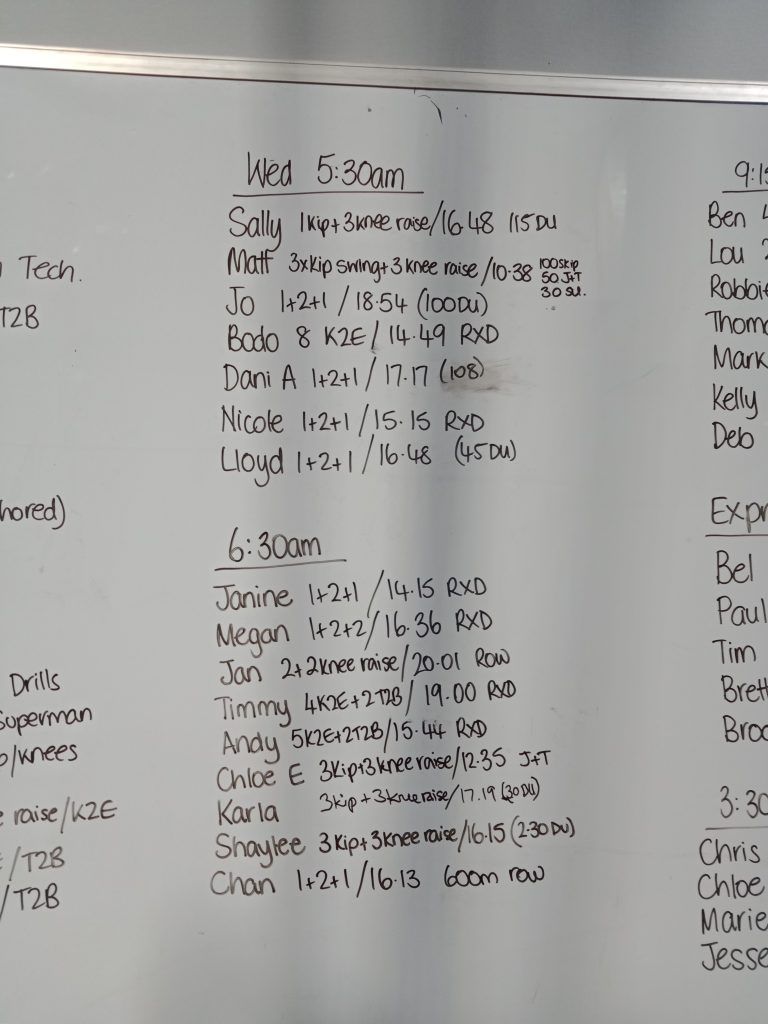 Tech.
T2B
hored)
Drills
Superman
o/knees
e raise/K2E
/T2B
/T2B
Wed 5:30am
Sally 1 kip + 3 knee raise/16.48 115 DU
Matt 3x kip swing + 3 knee raise/10.38 100 skip
50 J+T
30 su.
Jo 1+2+1 / 18.54 (100 DU)
Bodo 8 K2E / 14.49 RXD
Dani A 1+2+1 / 17.17 (108)
Nicole 1+2+1 / 15.15 RXD
Lloyd 1+2+1 / 16.48 (45 DU)
6:30am
Janine 1+2+1 / 14.15 RXD
Megan 1+2+2 / 16.36 RXD
Jan 2+2 knee raise/20.01 ROW
Timmy 4K2E+2T2B/ 19.00 RXD
Andy 5K2E+2T2B/15.44 RXD
Chloe E 3kip+3knee raise/12.35 J+T
Karla 3kip+3knee raise/17.19 (30 DU)
Shaylee 3kip+3knee raise/16.15 (2.30 DU)
Chan 1+2+1/16.13 600m row
9:15
Ben 4
Lou 2
Robbie
Thom
Mark
Kelly
Deb
Expr
Bel
Paul
Tim
Brett
Broo
3:30
Chris
Chloe
Marie
Jesse